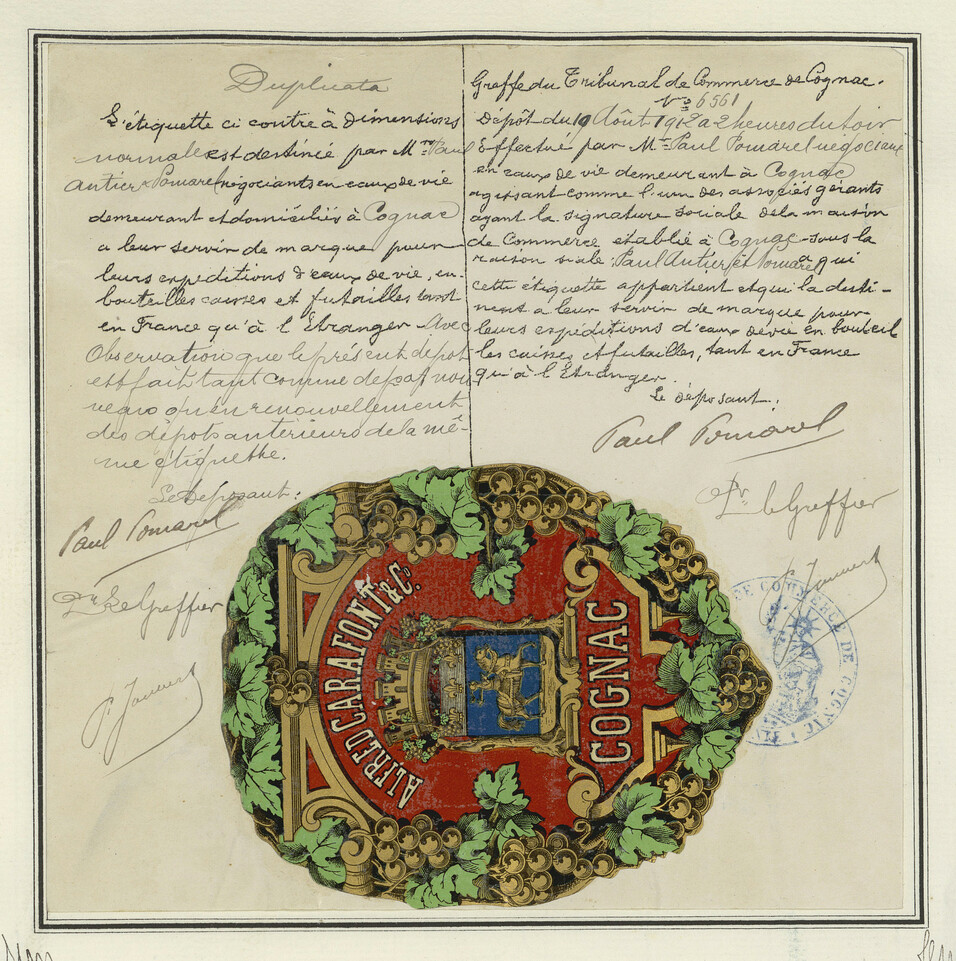 Duplicata
L'étiquette ci contre à dimensions
normales est destinée par Mrs Paul
Antier & Pomarel négociants en eaux de vie
demeurant et domiciliés à Cognac
a leur servir de marque pour
leurs expeditions d'eaux de vie, en
bouteilles caisses et futailles tant
en France qu'à l'Etranger - Avec
Observation que le présent dépot
est fait tant comme depot nou
veau qu'en renouvellement
des dépots anterieurs de la mê-
me étiquette.
Le Déposant :
Paul Pomarel
Pr Le Greffier
Greffe du Tribunal de Commerce de Cognac.
No 6561
Dépôt du 19 Août 1912 a 2 heures du soir
Effectué par Mr Paul Pomarel negociant
en eaux de vie demeurant à Cognac
agissant comme l'un des associés gérants
ayant la signature sociale de la maison
de Commerce établie à Cognac sous la
raison siale : Paul Antier et Pomarel à qui
cette étiquette appartient et qui la desti-
nent a leur servir de marque pour
leurs expéditions d'eaux de vie en bouteil
les caisses et futailles, tant en France
qu'à l'Etranger.
Le déposant :
Paul Pomarel
Pr le Greffier
ALFRED CARAFONT & Co.
COGNAC
DE COMMERCE DE COGNAC